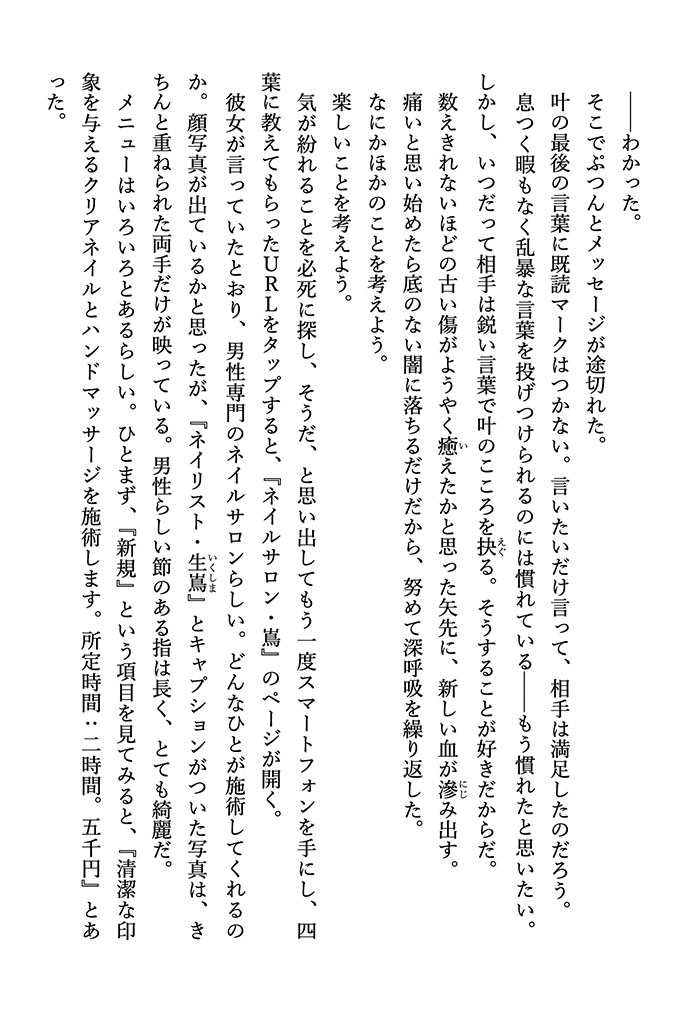 ――わかった。
そこでぷつんとメッセージが途切れた。
叶の最後の言葉に既読マークはつかない。言いたいだけ言って、相手は満足したのだろう。
息つく暇もなく乱暴な言葉を投げつけられるのには慣れている――もう慣れたと思いたい。
しかし、いつだって相手は鋭い言葉で叶のこころを抉えぐる。そうすることが好きだからだ。
数えきれないほどの古い傷がようやく癒いえたかと思った矢先に、新しい血が滲にじみ出す。
痛いと思い始めたら底のない闇に落ちるだけだから、努めて深呼吸を繰り返した。
なにかほかのことを考えよう。
楽しいことを考えよう。
気が紛れることを必死に探し、そうだ、と思い出してもう一度スマートフォンを手にし、四
葉に教えてもらったURLをタップすると、『ネイルサロン・嶌』のページが開く。
彼女が言っていたとおり、男性専門のネイルサロンらしい。どんなひとが施術してくれるの
か。顔写真が出ているかと思ったが、『ネイリスト・生嶌いくしま』とキャプションがついた写真は、き
ちんと重ねられた両手だけが映っている。男性らしい節のある指は長く、とても綺麗だ。
メニューはいろいろとあるらしい。ひとまず、『新規』という項目を見てみると、『清潔な印
象を与えるクリアネイルとハンドマッサージを施術します。所定時間：二時間。五千円』とあ
った。